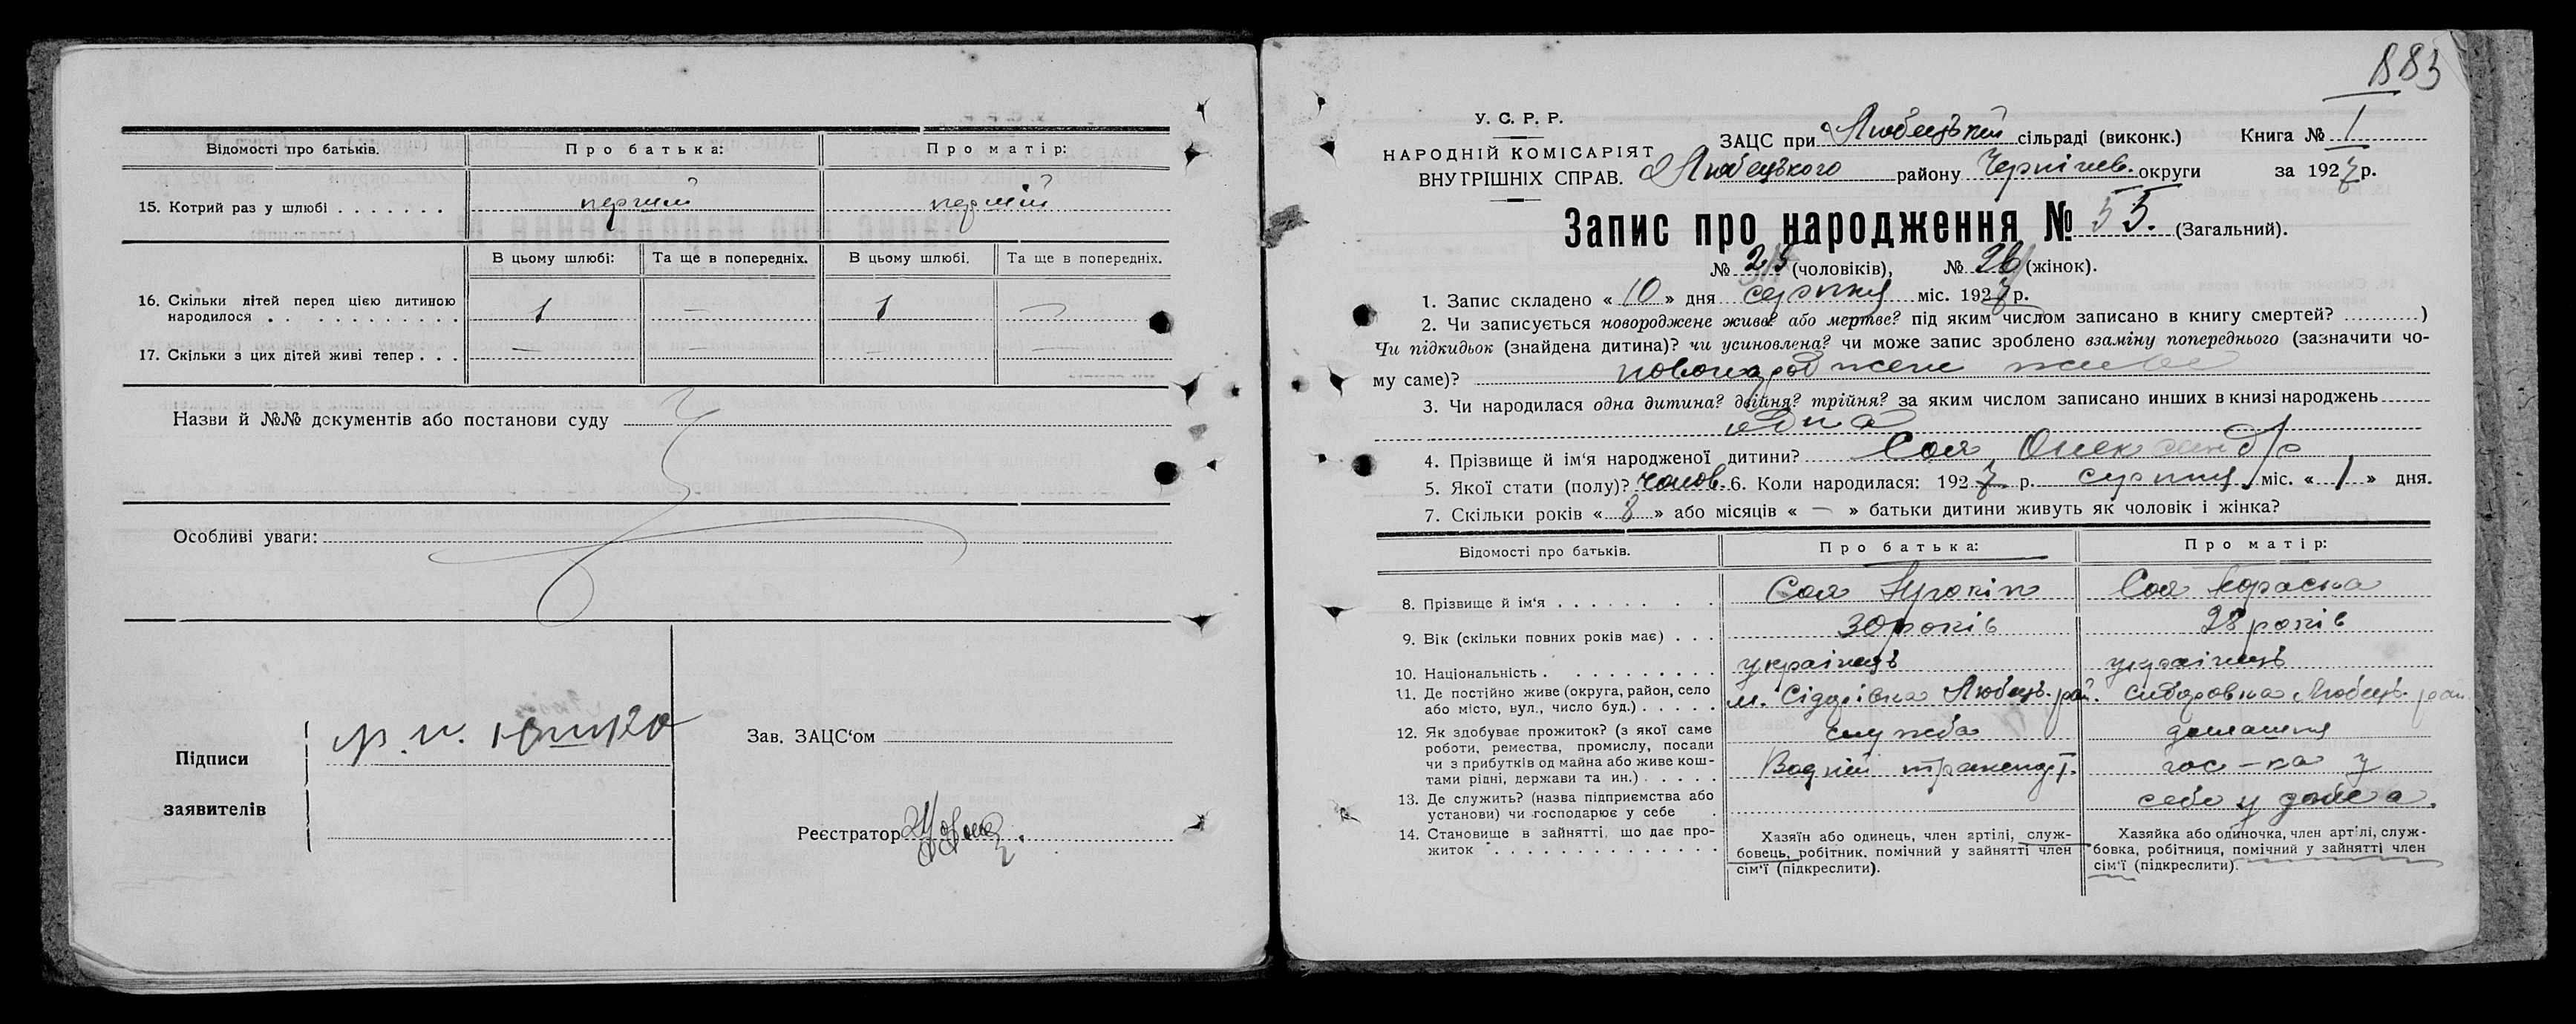 Відомості про батьків.
Про батька:
Про матір:
15. Котрий раз у шлюбі . . . . . . .
перший
перший
В цьому шлюбі:
Та ще в попередніх.
В цьому шлюбі.
Та ще в попередніх.
16. Скільки дітей перед цією дитиною
народилося . . . . . . . . . . .
1
—
1
—
17. Скільки з цих дітей живі тепер . . .
—
—
—
—
Назви й №№ документів або постанови суду
Особливі уваги:
Підписи
заявителів
Зав. ЗАЦС‘ом
Реєстратор
883
У. С. Р. Р.
НАРОДНІЙ КОМІСАРІЯТ
ВНУТРІШНІХ СПРАВ.
ЗАЦС при Любецькій сільраді (виконк.)
Книга № 1
Любецького району Чернігів. округи
за 1927 р.
Запис про народження № 55. (Загальний).
№ (чоловіків), № 26 (жінок).
1. Запис складено « 10 » дня серпня міс. 1927 р.
2. Чи записується новороджене живе? або мертве? під яким числом записано в книгу смертей? ...........)
Чи підкидьок (знайдена дитина)? чи усиновлена? чи може запис зроблено взаміну попереднього (зазначити чо-
му саме)? новонароджене живе
3. Чи народилася одна дитина? двійня? трійня? за яким числом записано инших в книзі народжень
одна
4. Прізвище й ім‘я народженої дитини? Соя Олександр
5. Якої стати (полу)? чолов. 6. Коли народилася: 1927 р. серпня міс. « 1 » дня.
7. Скільки років « 8 » або місяців « — » батьки дитини живуть як чоловік і жінка?
Відомості про батьків.
Про батька:
Про матір:
8. Прізвище й ім‘я . . . . . . . .
Соя Прокіп
Соя Параска
9. Вік (скільки повних років має) . . .
30 років
28 років
10. Національність . . . . . . . . . .
українець
українець
11. Де постійно живе (округа, район, село
або місто, вул., число буд.) . . . . .
Любець. рай.
Сидоровка Любець. рай.
12. Як здобуває прожиток? (з якої саме
роботи, ремества, промислу, посади
чи з прибутків од майна або живе кош-
тами рідні, держави та ин.) . . . . .
служба
Водний транспорт.
домашня
гос-ка у
13. Де служить? (назва підприємства або
установи) чи господарює у себе .
себе у дома.
14. Становище в зайнятті, що дає про-
житок . . . . . . . . . . . . . . .
Хазяїн або одинець, член артілі, служ-
бовець, робітник, помічний у зайнятті член
сім‘ї (підкреслити).
Хазяйка або одиночка, член артілі, служ-
бовка, робітниця, помічний у зайнятті член
сім‘ї (підкреслити).